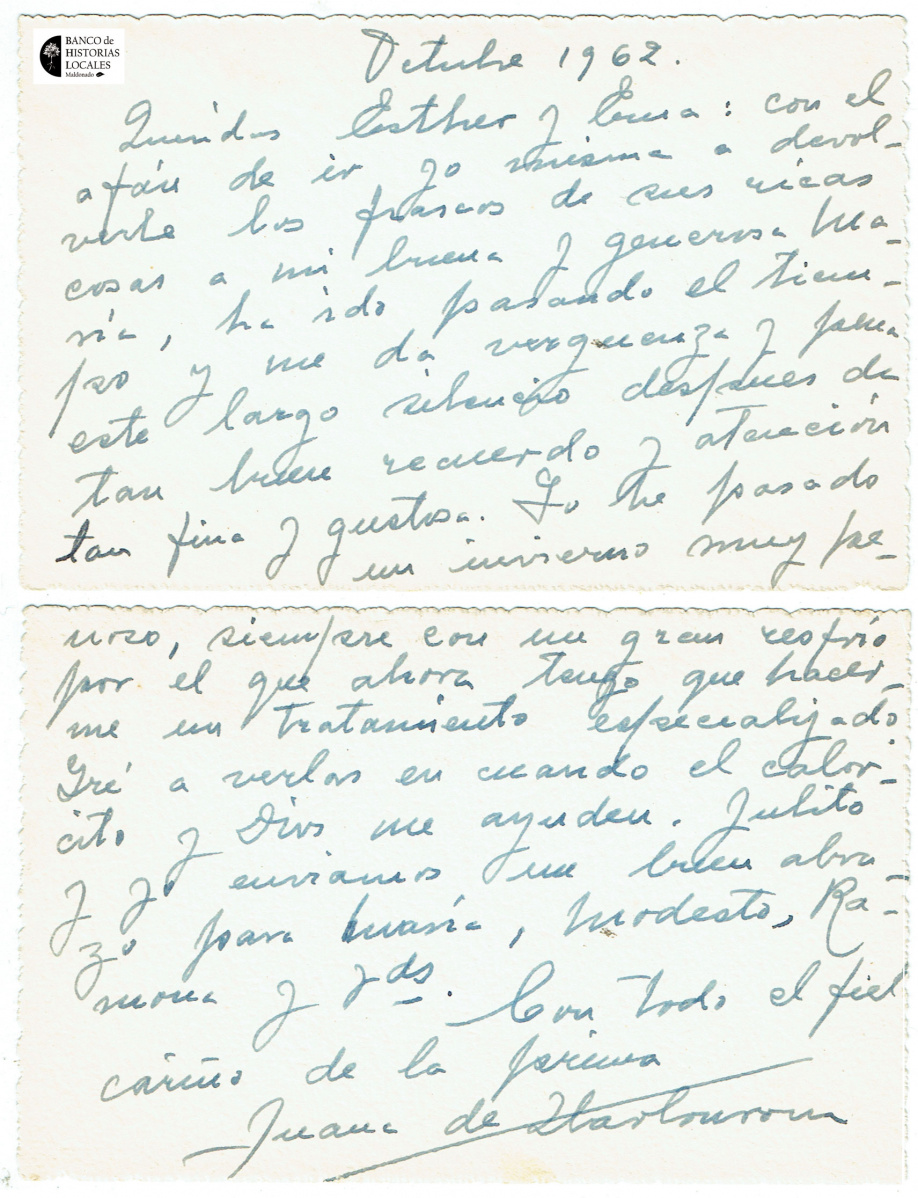 BANCO de
HISTORIAS
LOCALES
Maldonado
Octubre 1962.
Queridas Esther y Ema: con el
afán de ir yo misma a devol-
verle los frascos de sus ricas
cosas a mi buena y generosa Ma-
ría, ha ido pasando el tiem-
po y me da verguenza y pena
este largo silencio despues de
tan buen recuerdo y atención
tan fina y gustosa. Yo he pasado
un invierno muy pe-
noso, siempre con un gran resfrío
por el que ahora tengo que hacer-
me un tratamiento especializado
Iré a verlas en cuando el calor-
cito y Dios me ayuden. Julito
y yo enviamos un buen abra-
zo para María, Modesto, Ra-
mona y Vds. Con todo el fiel
cariño de la prima
Juana de Ibarbourou